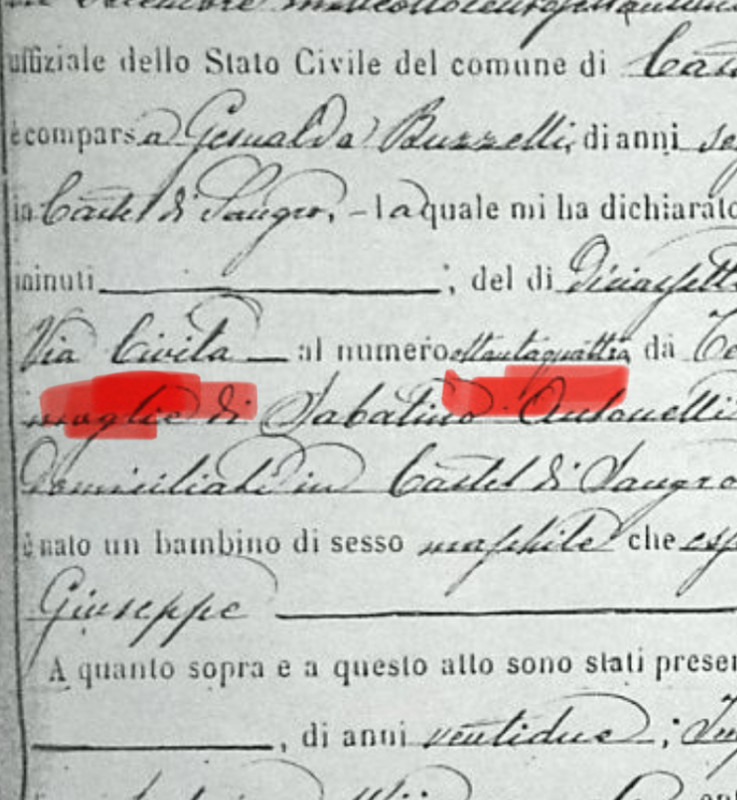 uffiziale dello Stato Civile del comune di
è comparsa Gesualda Buzzelli, di anni
in Castel di Sangro, - la quale mi ha dichiarato
minuti ; del dì diciassett
Via Civita — al numero ottantaquattro, da
moglie di Sabatino Antonelli
domiciliati in Castel di Sangro
è nato un bambino di sesso maschile che
Giuseppe
A quanto sopra e a questo atto sono stati presen
, di anni ventidue ;